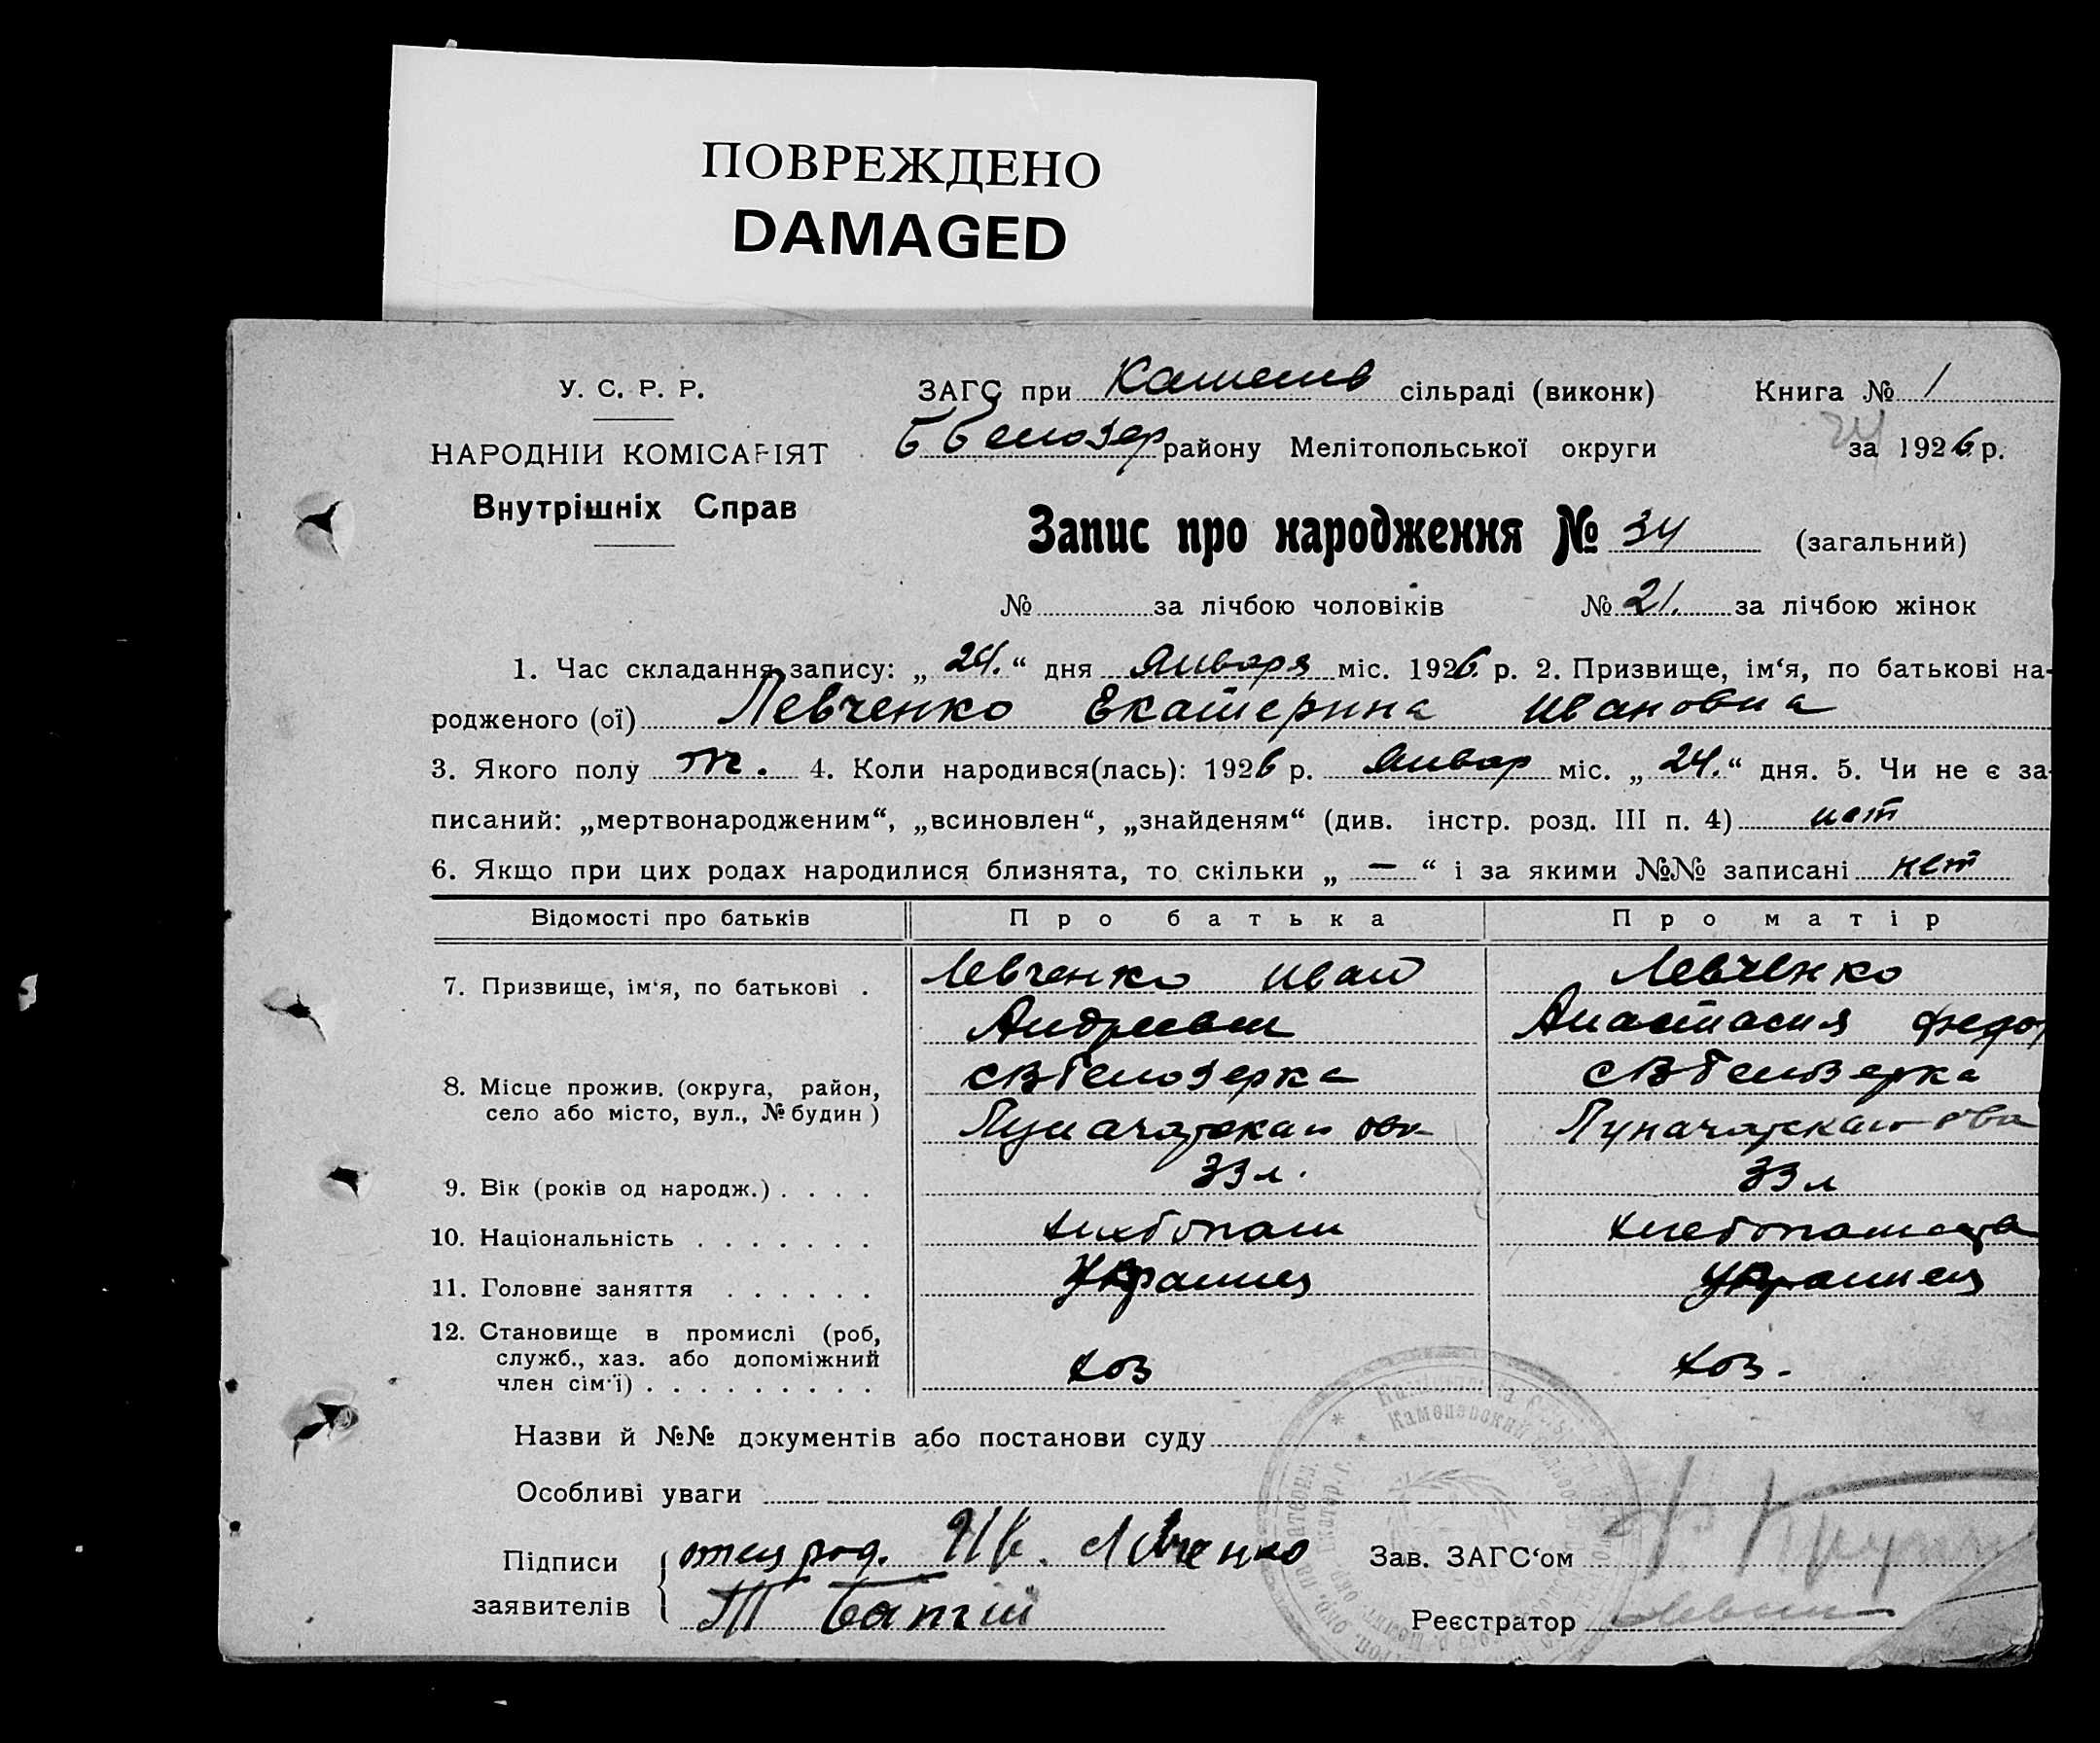 ПОВРЕЖДЕНО
DAMAGED
У. С. Р. Р.
НАРОДНІЙ КОМІСАРІЯТ
Внутрішніх Справ
ЗАГС при Каменск сільраді (виконк) Книга № 1
Б Белозер району Мелітопольської округи за 1926 р.
Запис про народження № 34 (загальний)
№ за лічбою чоловіків № 21. за лічбою жінок
1. Час складання запису: „ 24. “ дня Января міс. 1926 р. 2. Призвище, ім‘я, по батькові на-
родженого (ої) Левченко Екатерина Ивановна
3. Якого полу ж. 4. Коли народився(лась): 1926 р. Январ міс. „ 24. “ дня. 5. Чи не є за-
писаний: „мертвонародженим“, „всиновлен“, „знайденям“ (див. інстр. розд. III п. 4) нет
6. Якщо при цих родах народилися близнята, то скільки „ — “ і за якими №№ записані нет
Відомості про батьків Про батька Про матір
7. Призвище, ім‘я, по батькові . Левченко Иван Левченко
Андреевич Анастасия Федор
8. Місце прожив. (округа, район, село або місто, вул., № будин ) с Б Белозерка с Б Белозерка
Луначарская Луначарская
9. Вік (років од народж.) . . . . 33 л. 33 л
10. Національність . . . . . . . хлебопаш
11. Головне заняття . . . . . . Украинец Украинец
12. Становище в промислі (роб, служб., хаз. або допоміжний член сім‘ї) . . . . . . . . . хоз хоз.
Назви й №№ документів або постанови суду
Особливі уваги
Підписи заявителів отец род. Ив. Левченко
Зав. ЗАГС‘ом
Реєстратор